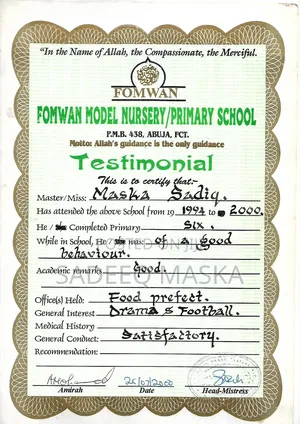 "In the Name of Allah, the Compassionate, the Merciful.
FOMWAN
FOMWAN MODEL NURSERY/PRIMARY SCHOOL
P.M.B. 438, ABUJA, FCT.
Motto: Allah's guidance is the only guidance
Testimonial
This is to certify that:-
Master/Miss: Maska Sadiq.
Has attended the above School from 19 1994 to 2000.
He / Completed Primary Six.
While in School, He was: of a good
behaviour.
Academic remarks Good.
SADEEQ MASKA
Office(s) Held: Food prefect.
General Interest Drama & Football.
Medical History
General Conduct: Satisfactory.
Recommendation:
26/07/2000
Amirah Date Head-Mistress